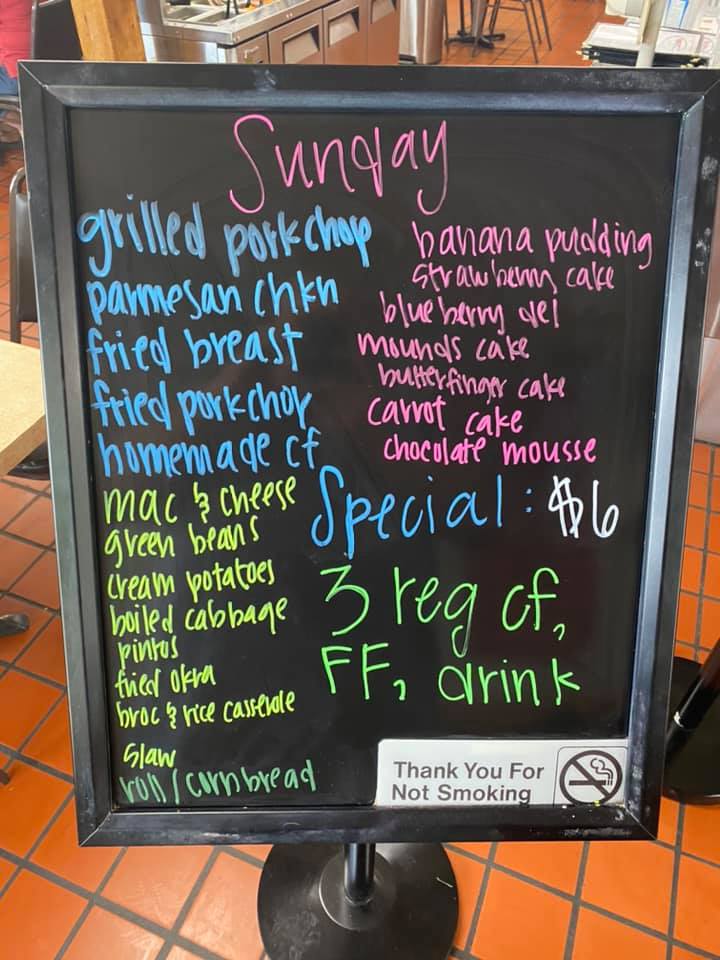 Sunday
grilled porkchop
parmesan chkn
fried breast
fried porkchop
homemade cf
mac & cheese
green beans
cream potatoes
boiled cabbage
pintos
fried okra
broc & rice casserole
slaw
roll / cornbread
banana pudding
strawberry cake
blueberry del
mounds cake
butterfinger cake
carrot cake
chocolate mousse
Special: $6
3 reg cf,
FF, drink
Thank You For
Not Smoking